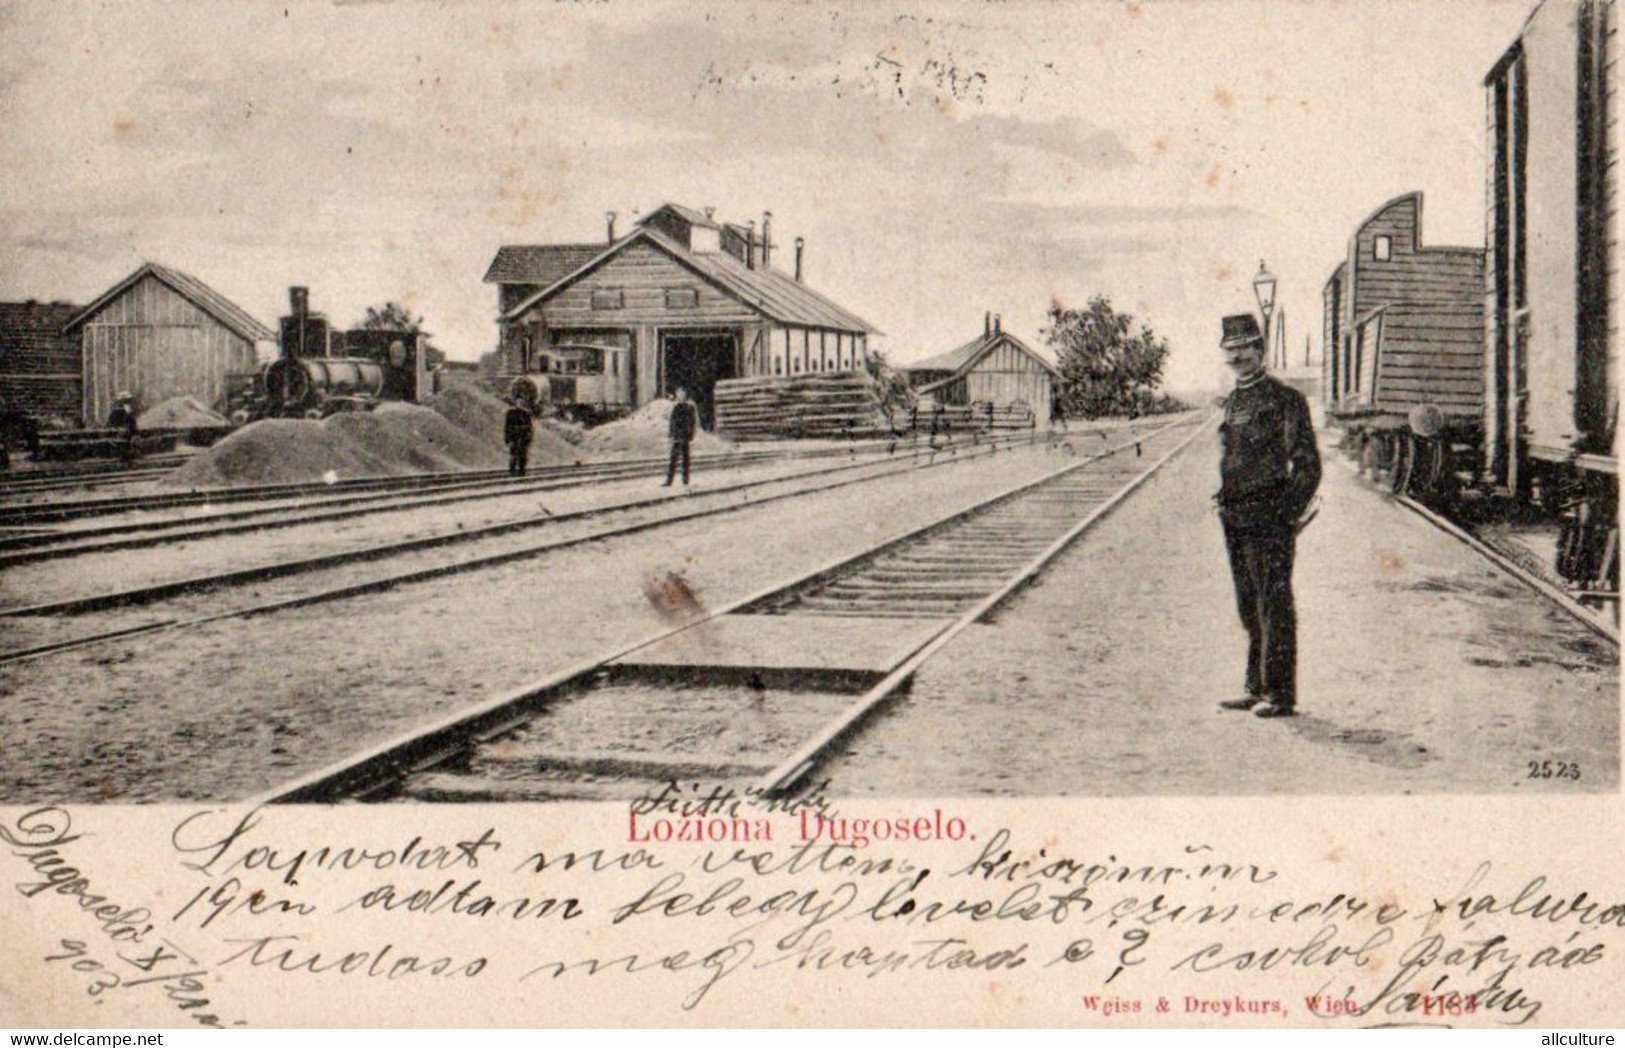 2523
Loziona Dugoselo.
Lapodat ma vettem, köszönöm
19én adtam fel egy levelet czimedre falura
tudass meg kaptad e? csokol Bátyád
Dugoseló X/21
903.
Weiss & Dreykurs, Wien. 1183
allculture